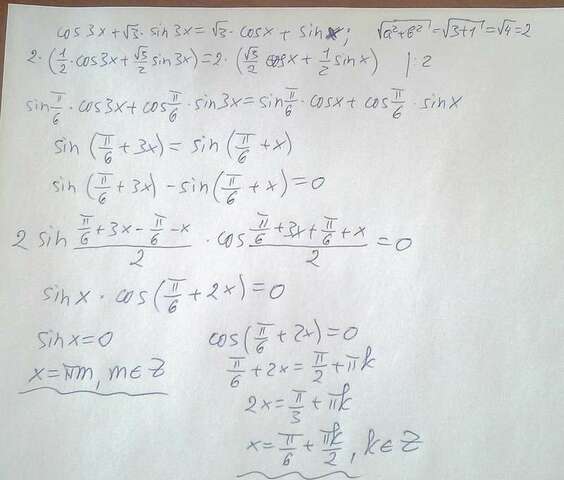 cos3x+√3·sin3x=√3·cosx+sinx; √a²+b²=√3+1=√4=2
2·(1/2·cos3x+√3/2 sin3x)=2·(√3/2 cosx+1/2 sinx) |:2
sin π/6·cos3x+cos π/6·sin3x=sin π/6·cosx+cos π/6·sinx
sin(π/6+3x)=sin(π/6+x)
sin(π/6+3x)-sin(π/6+x)=0
2 sin (π/6+3x-π/6-x)/2 · cos (π/6+3x+π/6+x)/2 =0
sinx·cos(π/6+2x)=0
sinx=0
x=πm, m∈Z
cos(π/6+2x)=0
π/6+2x=π/2+πk
2x=π/3+πk
x=π/6+πk/2, k∈Z